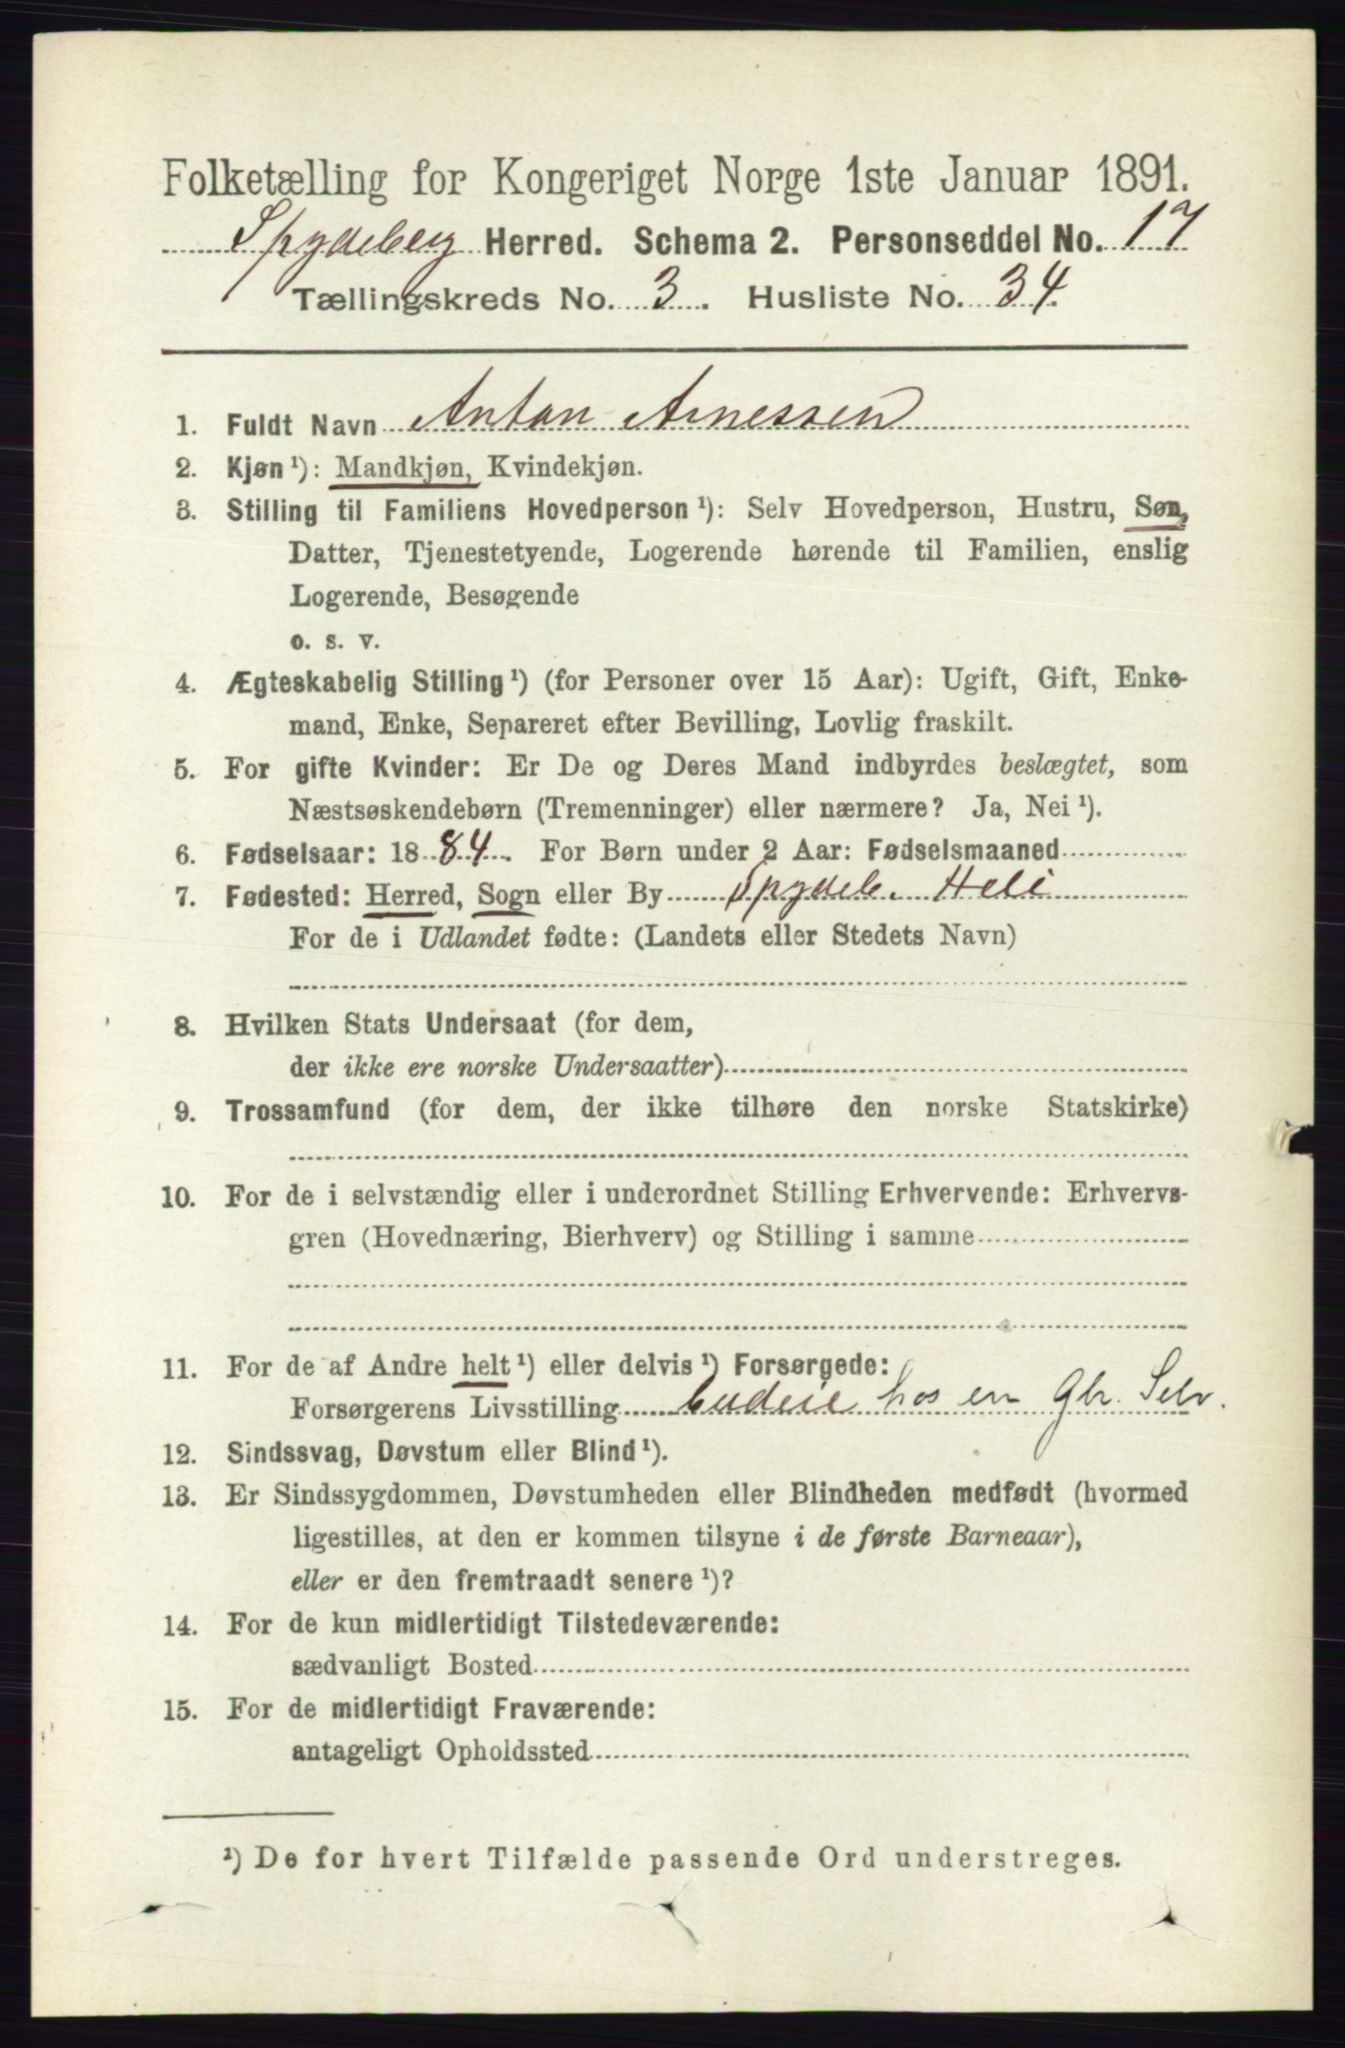 Folketælling for Kongeriget Norge 1ste Januar 1891.
Spydeberg Herred. Schema 2. Personseddel No. 17
Tællingskreds No. 3. Husliste No. 34.
1. Fuldt Navn Anton Arnessen
2. Kjøn ¹): Mandkjøn, Kvindekjøn.
3. Stilling til Familiens Hovedperson ¹): Selv Hovedperson, Hustru, Søn,
Datter, Tjenestetyende, Logerende hørende til Familien, enslig
Logerende, Besøgende
o. s. v.
4. Ægteskabelig Stilling ¹) (for Personer over 15 Aar): Ugift, Gift, Enke-
mand, Enke, Separeret efter Bevilling, Lovlig fraskilt.
5. For gifte Kvinder: Er De og Deres Mand indbyrdes beslægtet, som
Næstsøskendebørn (Tremenninger) eller nærmere? Ja, Nei ¹).
6. Fødselsaar: 1884. For Børn under 2 Aar: Fødselsmaaned
7. Fødested: Herred, Sogn eller By Spydeb. Heli
For de i Udlandet fødte: (Landets eller Stedets Navn)
8. Hvilken Stats Undersaat (for dem,
der ikke ere norske Undersaatter)
9. Trossamfund (for dem, der ikke tilhøre den norske Statskirke)
10. For de i selvstændig eller i underordnet Stilling Erhvervende: Erhvervs-
gren (Hovednæring, Bierhverv) og Stilling i samme
11. For de af Andre helt ¹) eller delvis ¹) Forsørgede:
Forsørgerens Livsstilling hos en Gbr. Selv.
12. Sindssvag, Døvstum eller Blind ¹).
13. Er Sindssygdommen, Døvstumheden eller Blindheden medfødt (hvormed
ligestilles, at den er kommen tilsyne i de første Barneaar),
eller er den fremtraadt senere ¹)?
14. For de kun midlertidigt Tilstedeværende:
sædvanligt Bosted
15. For de midlertidigt Fraværende:
antageligt Opholdssted
¹) De for hvert Tilfælde passende Ord understreges.